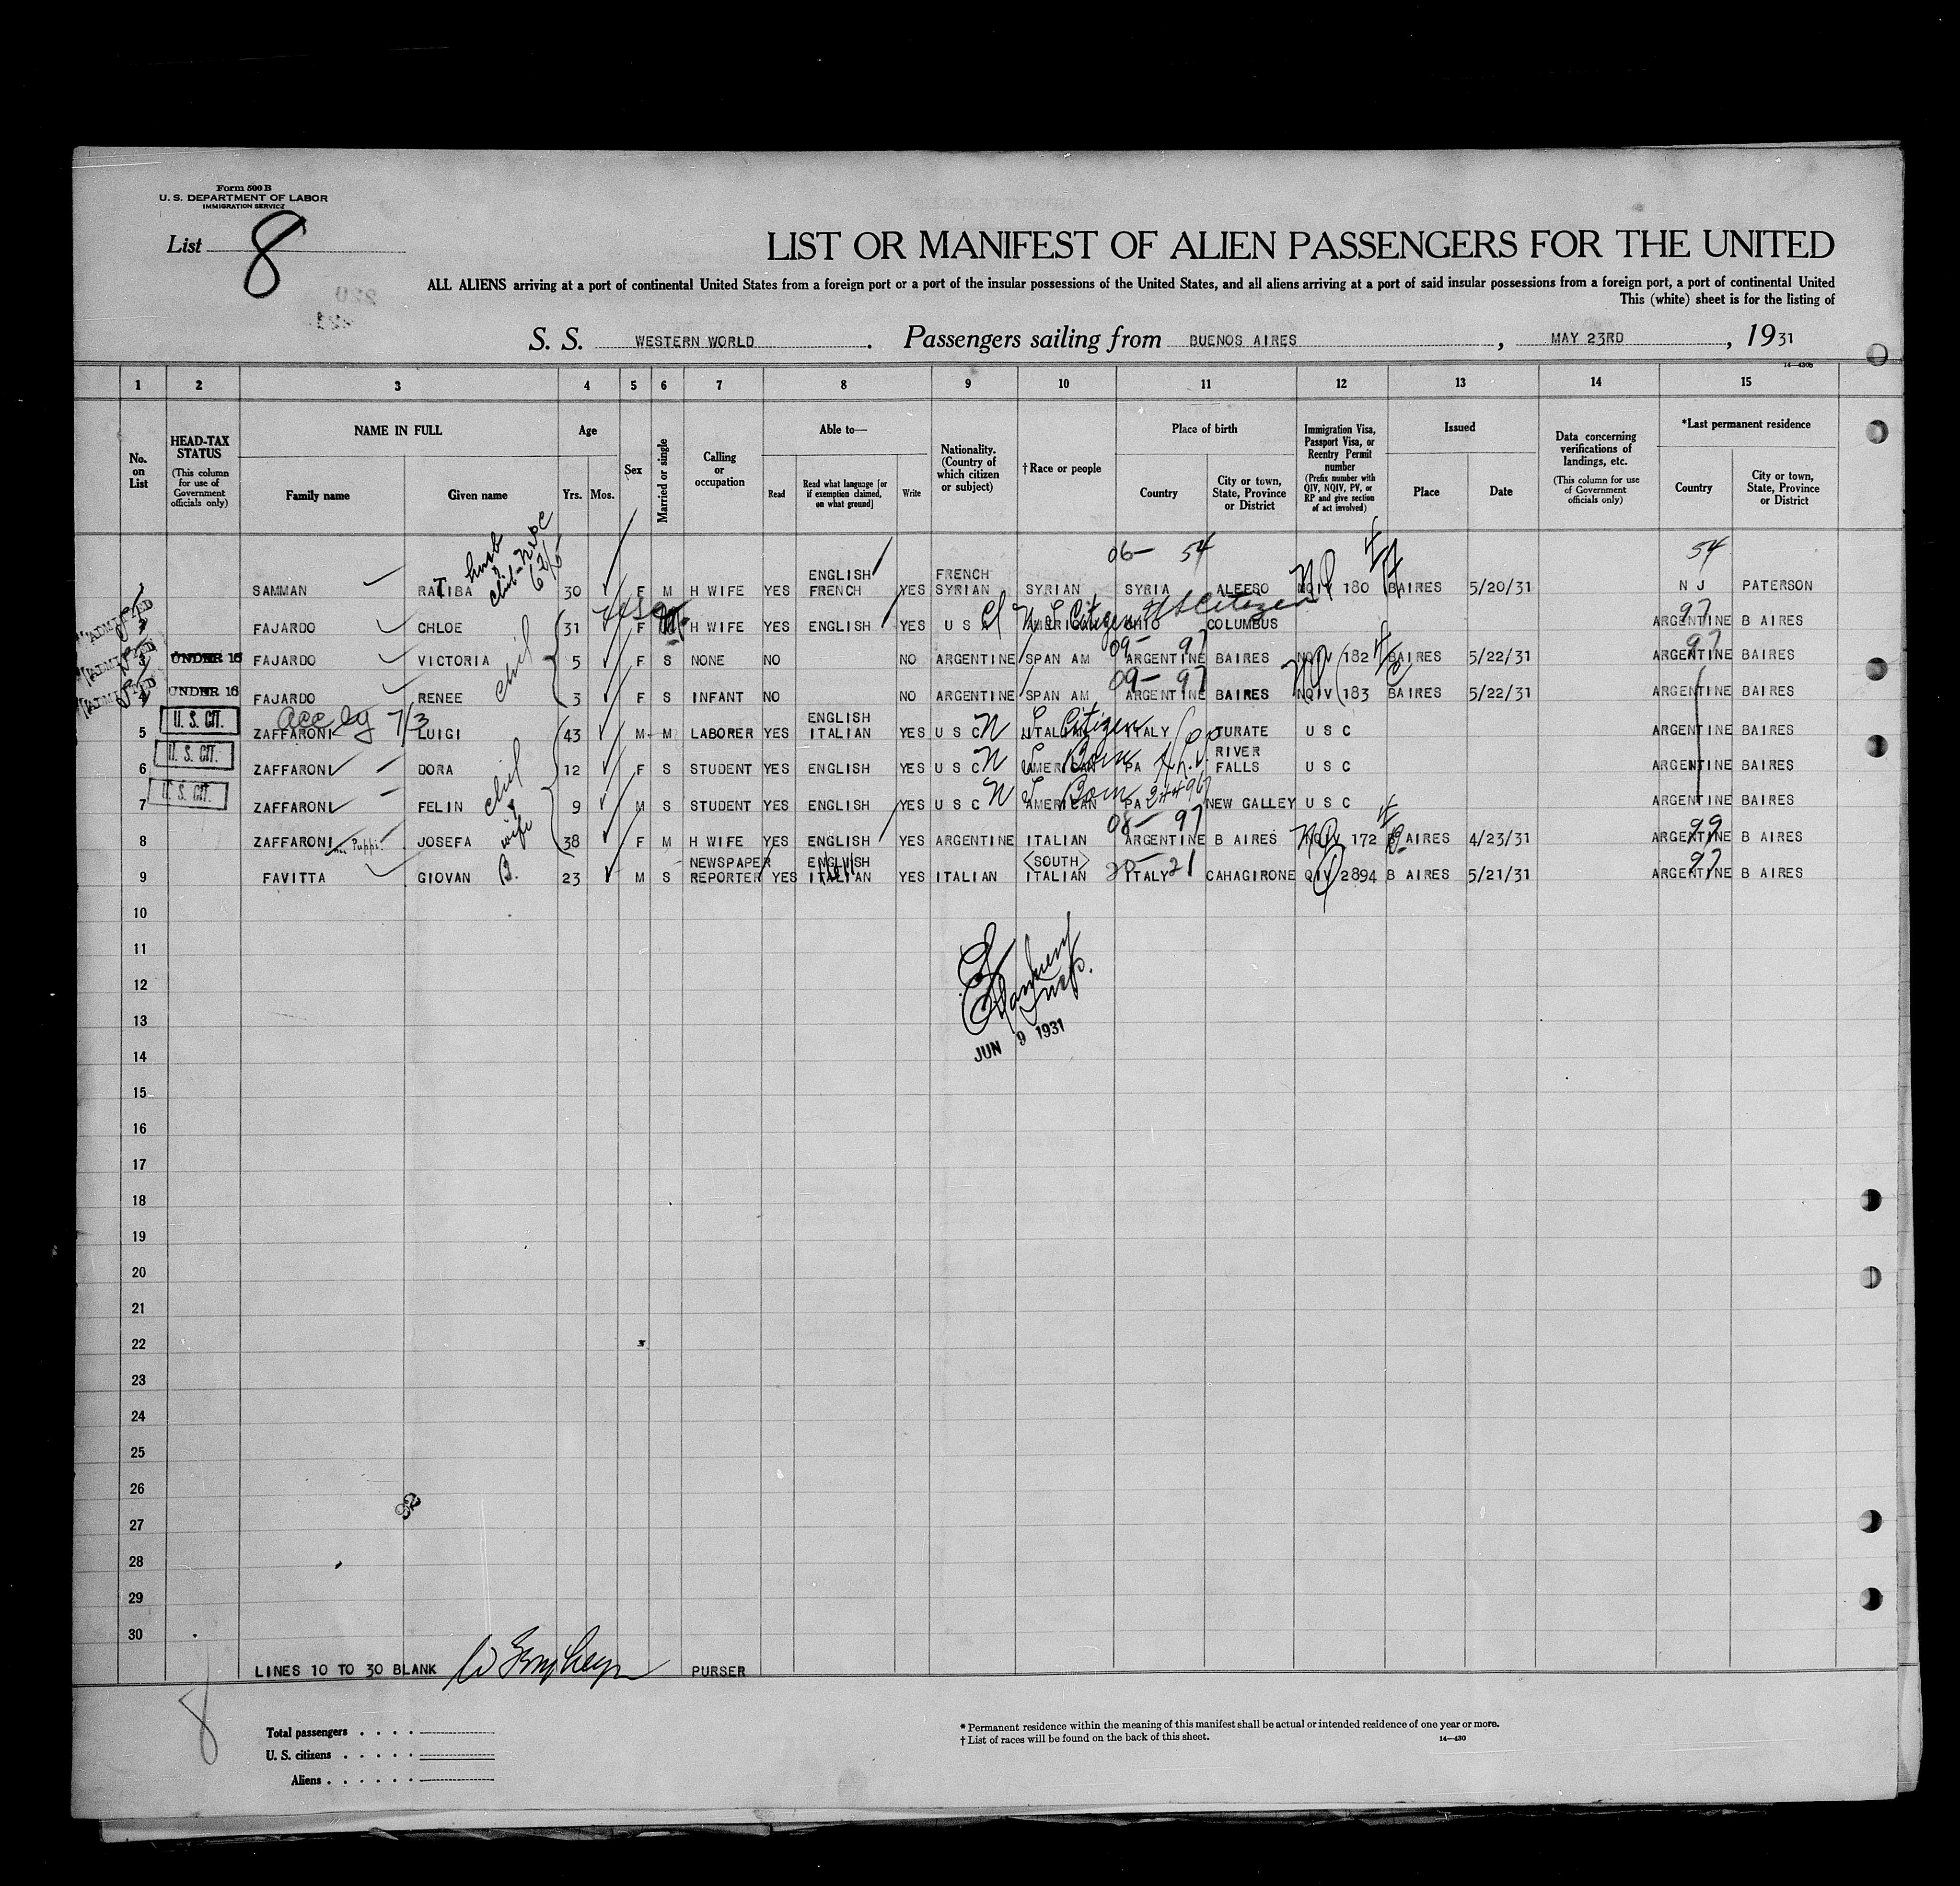 Form 500 B
U. S. DEPARTMENT OF LABOR
IMMIGRATION SERVICE
List 8
LIST OR MANIFEST OF ALIEN PASSENGERS FOR THE UNITED
ALL ALIENS arriving at a port of continental United States from a foreign port or a port of the insular possessions of the United States, and all aliens arriving at a port of said insular possessions from a foreign port, a port of continental United
This (white) sheet is for the listing of
S. S. WESTERN WORLD. Passengers sailing from BUENOS AIRES, MAY 23RD, 1931
14—430b
1 2 3 4 5 6 7 8 9 10 11 12 13 14 15
No. on List
HEAD-TAX STATUS
(This column for use of Government officials only)
NAME IN FULL
Family name
Given name
Age
Yrs. Mos.
Sex
Married or single
Calling or occupation
Able to—
Read
Read what language [or if exemption claimed, on what ground]
Write
Nationality. (Country of which citizen or subject)
†Race or people
Place of birth
Country
City or town, State, Province or District
Immigration Visa, Passport Visa, or Reentry Permit number
(Prefix number with QIV, NQIV, PV, or RP and give section of act involved)
Issued
Place
Date
Data concerning verifications of landings, etc.
(This column for use of Government officials only)
*Last permanent residence
Country
City or town, State, Province or District
06— 54 54
1 SAMMAN RATIBA 30 F M H WIFE YES ENGLISH FRENCH YES FRENCH SYRIAN SYRIAN SYRIA ALEESO NQIV 180 BAIRES 5/20/31 N J PATERSON
FAJARDO CHLOE 31 F M H WIFE YES ENGLISH YES U S A AMERICAN OHIO COLUMBUS ARGENTINE B AIRES
U S Citizen
09— 97 97
3 UNDER 16 FAJARDO VICTORIA 5 F S NONE NO NO ARGENTINE SPAN AM ARGENTINE BAIRES NQIV 182 BAIRES 5/22/31 ARGENTINE BAIRES
09— 97 97
4 UNDER 16 FAJARDO RENEE 3 F S INFANT NO NO ARGENTINE SPAN AM ARGENTINE BAIRES NQIV 183 BAIRES 5/22/31 ARGENTINE BAIRES
5 U. S. CIT. ZAFFARONI LUIGI 43 M M LABORER YES ENGLISH ITALIAN YES U S C ITALIAN ITALY TURATE U S C ARGENTINE BAIRES
7/3
Citizen
6 U. S. CIT. ZAFFARONI DORA 12 F S STUDENT YES ENGLISH YES U S C AMERICAN PA RIVER FALLS U S C ARGENTINE BAIRES
Born
7 U. S. CIT. ZAFFARONI FELIN 9 M S STUDENT YES ENGLISH YES U S C AMERICAN PA NEW GALLEY U S C ARGENTINE BAIRES
Born
08— 97 99
8 ZAFFARONI JOSEFA 38 F M H WIFE YES ENGLISH YES ARGENTINE ITALIAN ARGENTINE B AIRES NQIV 172 B AIRES 4/23/31 ARGENTINE B AIRES
wife
97
9 FAVITTA GIOVAN B. 23 M S NEWSPAPER REPORTER YES ENGLISH ITALIAN YES ITALIAN <SOUTH> ITALIAN ITALY CAHAGIRONE QIV 2894 B AIRES 5/21/31 ARGENTINE B AIRES
10
11
12
13
JUN 9 1931
14
15
16
17
18
19
20
21
22
23
24
25
26
27
28
29
30
LINES 10 TO 30 BLANK PURSER
8
Total passengers
U. S. citizens
Aliens
* Permanent residence within the meaning of this manifest shall be actual or intended residence of one year or more.
† List of races will be found on the back of this sheet.
14—430